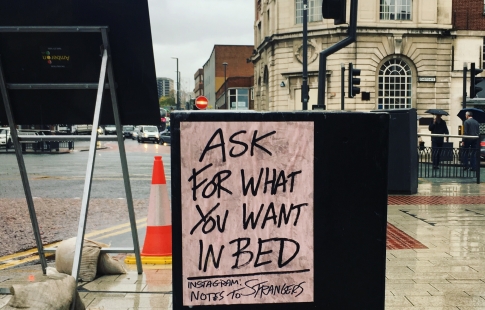 ASK
FOR WHAT
YOU WANT
IN BED
INSTAGRAM:
NOTES TO STRANGERS